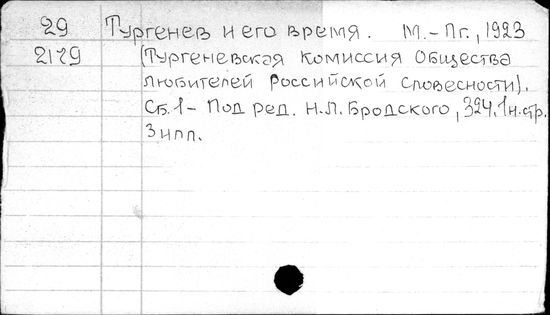 29 Тургенев и его время. М.-Пг., 1923
2129 (Тургеневская комиссия Общества
любителей Российской словесности).
Сб. 1 - Под ред. Н.Л. Бродского, 324, 1 н. стр.
3 илл.